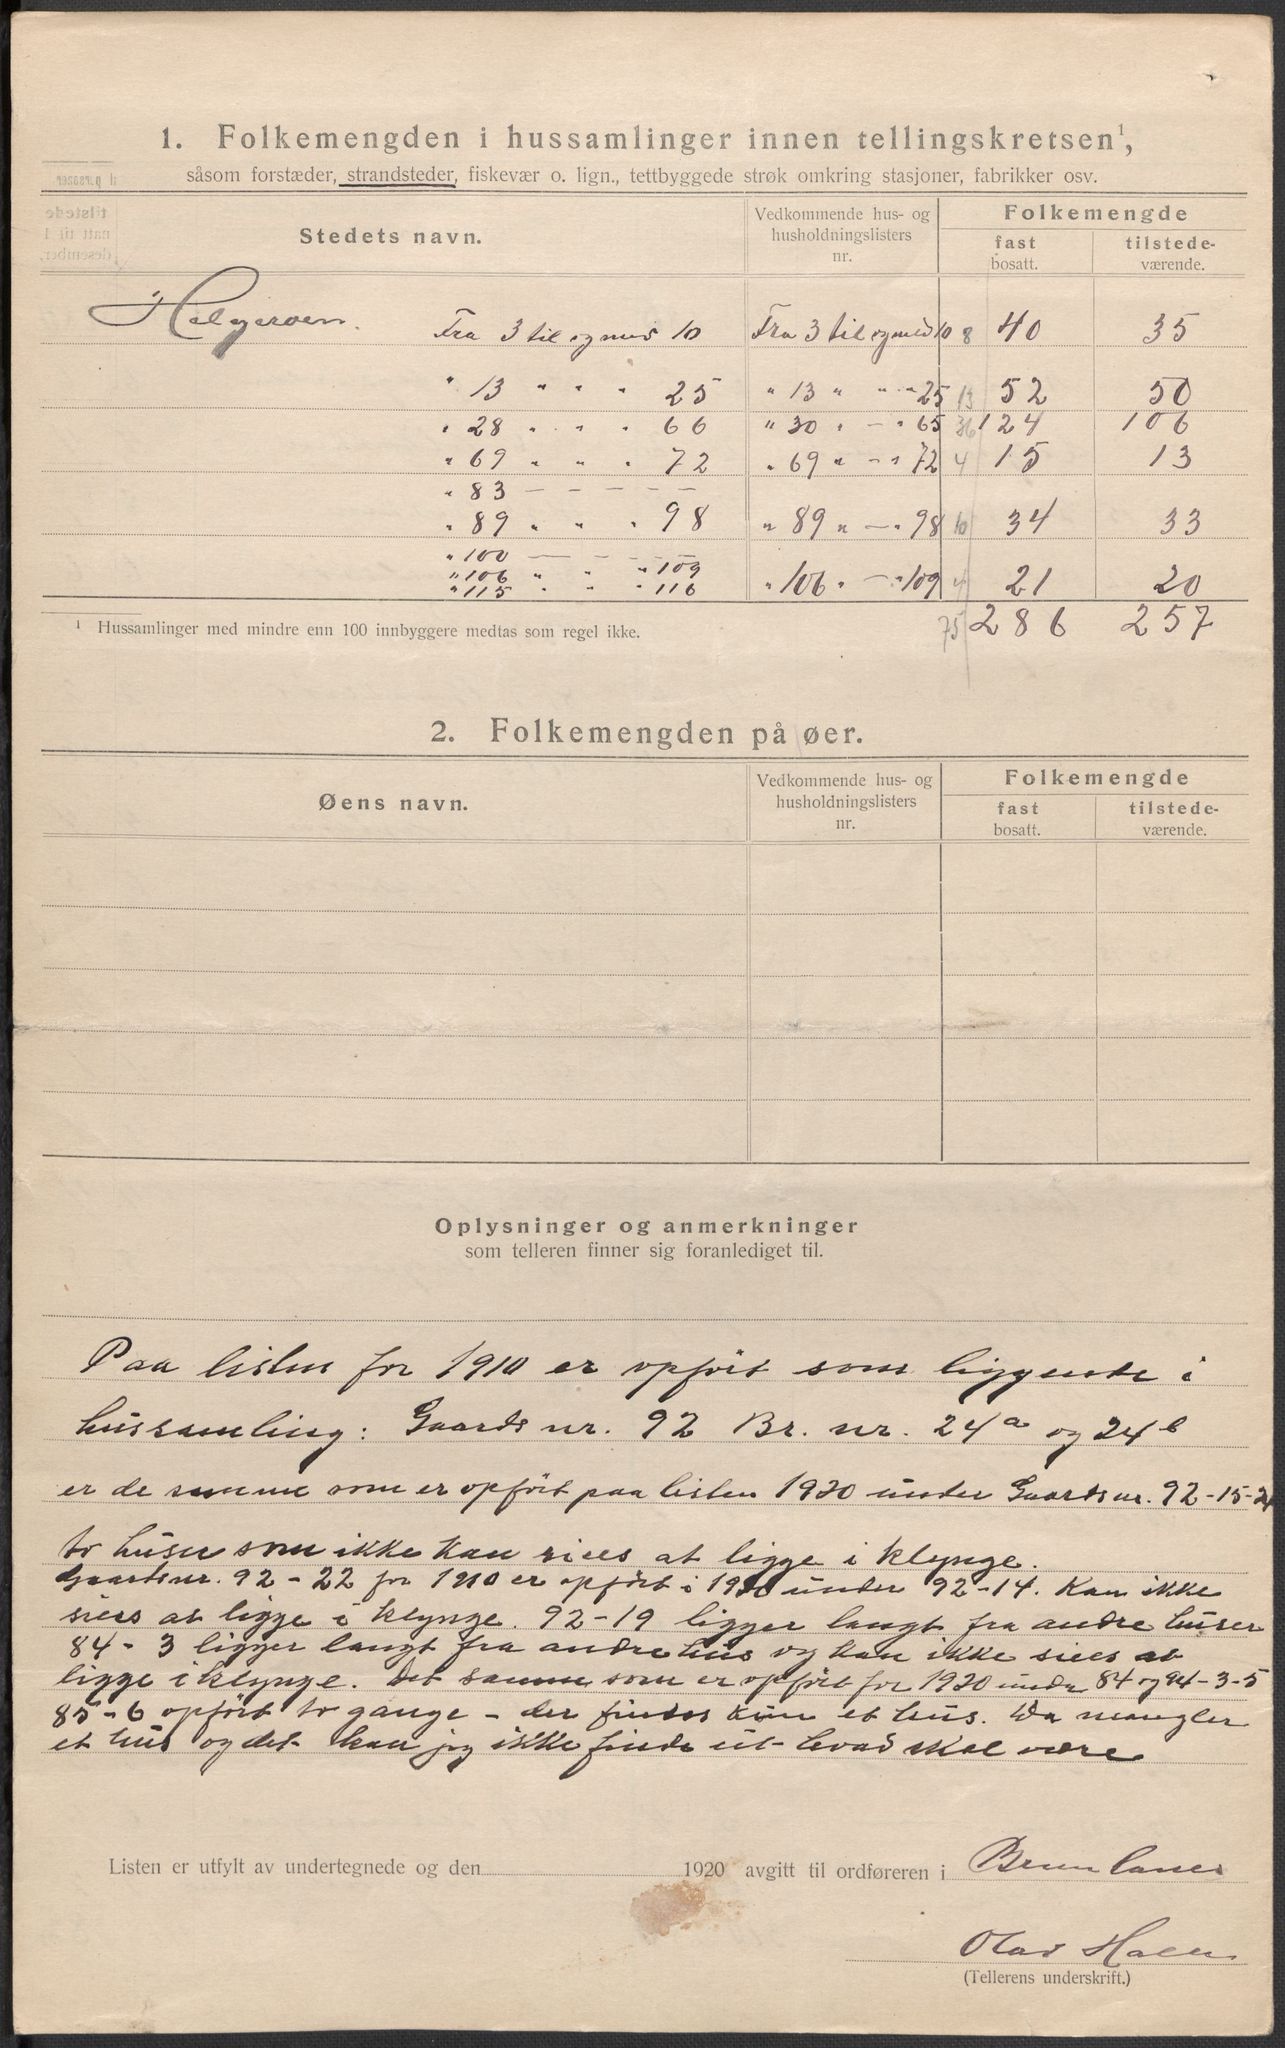 1. Folkemengden i hussamlinger innen tellingskretsen¹,
såsom forstæder, strandsteder, fiskevær o. lign., tettbyggede strøk omkring stasjoner, fabrikker osv.
Stedets navn. Vedkommende hus- og husholdningslisters nr. Folkemengde
fast bosatt. tilstede-værende.
Helgeroen. Fra 3 til og med 10 Fra 3 til og med 10 8 40 35
" 13 " " " 25 " 13 " " " 25 13 52 50
" 28 " " " 66 " 30 " — " 65 36 124 106
" 69 " " " 72 " 69 " — " 72 4 15 13
" 83 — — — — —
" 89 " " " 98 " 89 " — " 98 10 34 33
" 100 — — — — —
" 106 " " " 109 " 106 " — " 109 4 21 20
" 115 " " " 116
75 286 257
¹ Hussamlinger med mindre enn 100 innbyggere medtas som regel ikke.
2. Folkemengden på øer.
Øens navn. Vedkommende hus- og husholdningslisters nr. Folkemengde
fast bosatt. tilstede-værende.
Oplysninger og anmerkninger
som telleren finner sig foranlediget til.
Paa listen for 1910 er opført som liggende i
hussamling: Gaards nr. 92 Br. nr. 24a og 24b
er de samme som er opført paa listen 1920 under Gaardsnr. 92-15-24
to huse som ikke kan sies at ligge i klynge.
Gaardsnr. 92-22 for 1910 er opført i 1920 under 92-14. Kan ikke
sies at ligge i klynge. 92-19 ligger langt fra andre huser
84-3 ligger langt fra andre hus og kan ikke sies at
ligge i klynge. Det samme som er opført for 1920 under 84 og 94-3-5
85-6 opført to gange - der findes kun et hus. Da mangler
et hus og det kan jeg ikke finde ut hvad skal være
Listen er utfylt av undertegnede og den 1920 avgitt til ordføreren i Brunlanes
Olav Halen
(Tellerens underskrift.)